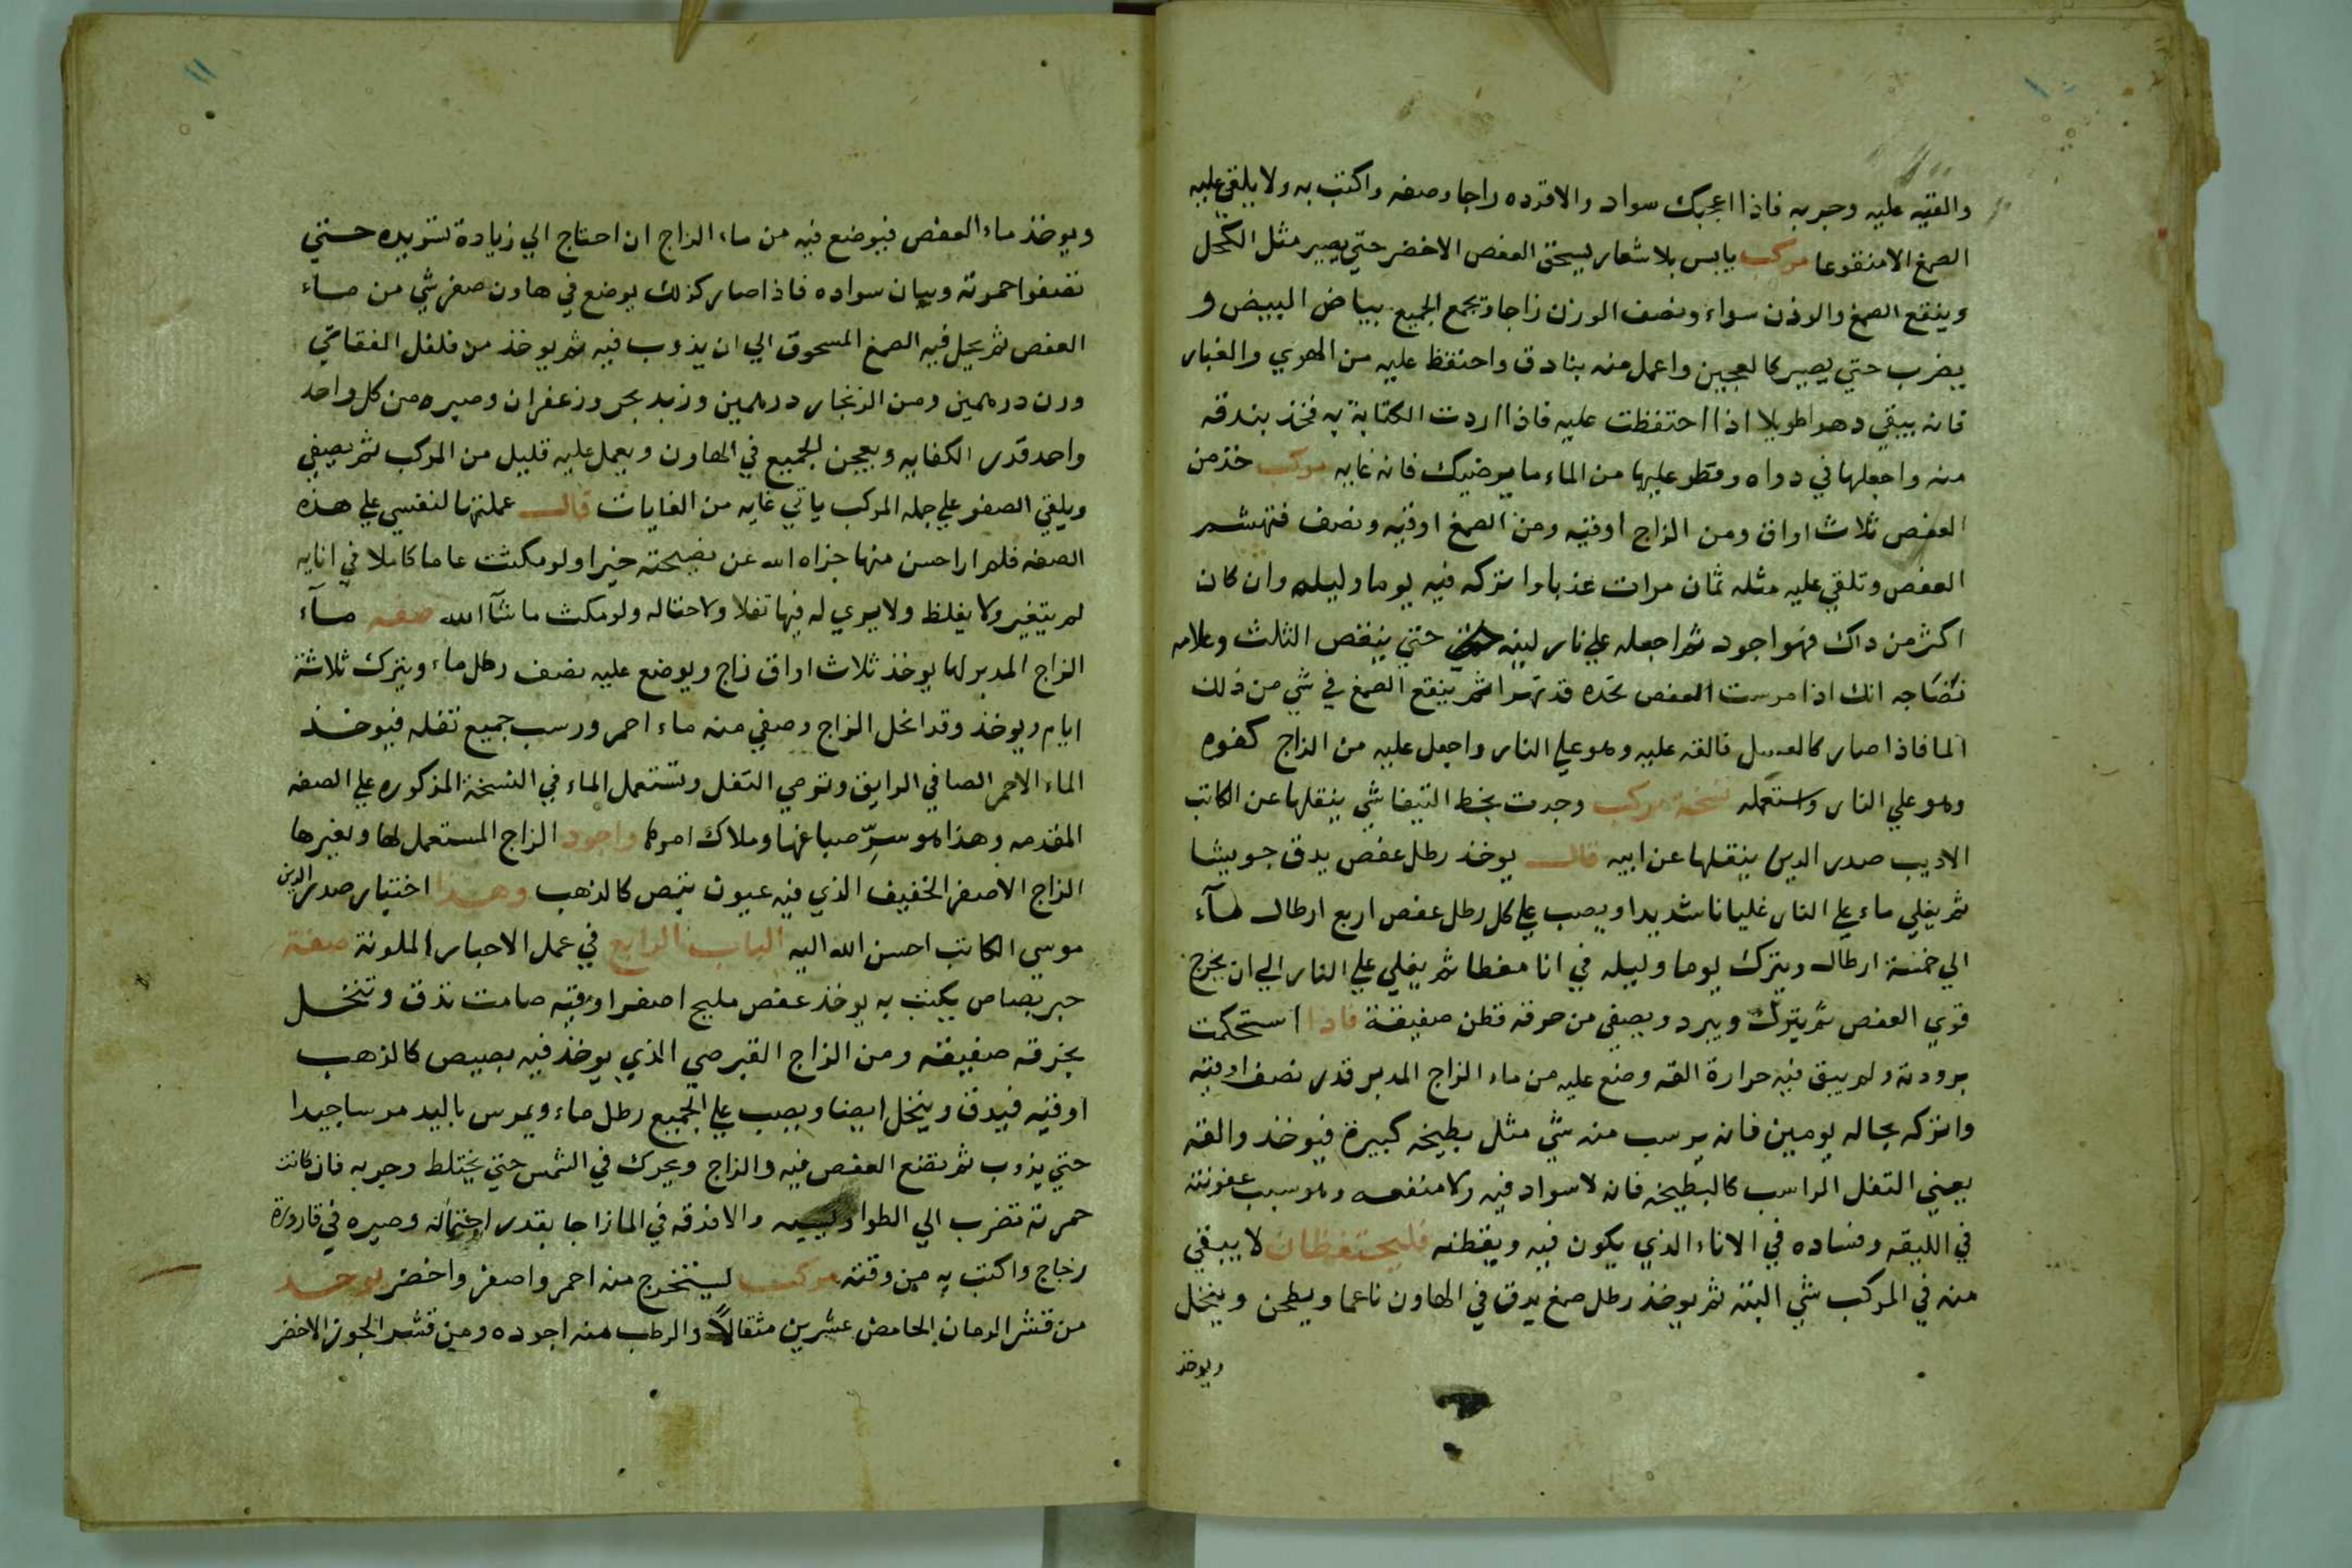 ١٠
والقيه عليه وجربه فاذا اعجبك سواد والا فزده زاجا وصفه واكتب به ولا يلقي عليه
الصمغ الا منقوعا مركب يابس بلا شعار يسحق العفص الاخضر حتي يصير مثل الكحل
وينقع الصمغ والوزن سواء ونصف الوزن زاجا وتجمع الجميع ببياض البيض و
يضرب حتي يصير كالعجين واعمل منه بنادق واحتفظ عليه من الهوي والغبار
فانه يبقي دهرا طويلا اذا احتفظت عليه فاذا اردت الكتابة به فخذ بندقه
منه واجعلها في دواه وقطر عليها من الماء ما يرضيك فانه غايه مركب خذ من
العفص ثلاث اواق ومن الزاج اوقيه ومن الصمغ اوقيه ونصف فتهشم
العفص وتلقي عليه مثله ثمان مرات عذبا واتركه فيه يوما وليله وان كان
اكثر من داك فهو اجود ثم اجعله علي نار لينه حتي ينقص الثلث وعلامه
نضاجه انك اذا مرست العفص تجده قد تهرا ثم ينقع الصمغ في شي من ذلك
الما فاذا صار كالعسل فالقه عليه وهو علي النار واجعل عليه من الزاج كفوه
وهو علي النار واستعمله نسخة مركب وجدت بخط التيفاشي ينقلها عن الكاتب
الاديب صدر الدين ينقلها عن ابيه قال يوخذ رطل عفص يدق جويشا
ثم يغلي ماء علي النار غليانا شديدا ويصب علي كل رطل عفص اربع ارطال مآء
الي خمسة ارطال ويترك يوما وليله في انا مغطا ثم يغلي علي النار الي ان يخرج
قوي العفص ثم يترك ويبرد ويصفي من خرقه قطن صفيقة فاذا استحكمت
برودته ولم يبق فيه حرارة القه وضع عليه من ماء الزاج المدبر قدر نصف اوقيه
واتركه بحاله يومين فانه يرسب منه شي مثل بطيخه كبيرة فيوخذ والقه
يعني التفل الراسب كالبطيخه فانه لا سواد فيه ولا منفعه وهو سبب عفونته
في الليقه وفساده في الاناء الذي يكون فيه ويقطنه فليحتفظ ان لا يبقي
منه في المركب شي البته ثم يوخذ رطل صمغ يدق في الهاون ناعما ويطحن وينخل
ويوخذ
١١
ويوخذ ماء العفص فيوضع فيه من ماء الزاج ان احتاج الي زيادة تسويده حتي
تصفوا حمرته وبيان سواده فاذا صار كذلك يوضع في هاون صفر شي من ماء
العفص ثم يحل فيه الصمغ المسحوق الي ان يذوب فيه ثم يوخذ من قلفل الفقاقي
وزن درهمين ومن الزنجار درهمين وزبد بحر وزعفران وصبره من كل واحد
واحد قدر الكفايه ويعجن الجميع في الهاون ويعمل عليه قليل من المركب ثم يصفي
ويلقي الصفو علي جمله المركب ياتي غايه من الغايات قال عملتها لنفسي علي هذه
الصفه فلم ار احسن منها جزاه الله عن نصيحته خيرا ولو مكثت عاما كاملا في انايه
لم يتغير ولا يغلظ ولا يري له فيها تفلا ولا حثاله ولو مكث ما شآ الله صفه مآء
الزاج المدبر لها يوخذ ثلاث اواق زاج ويوضع عليه نصف رطل ماء ويترك ثلاثة
ايام ويوخذ وقد انحل الزاج وصفي منه ماء احمر ورسب جميع تفله فيوخذ
الماء الاحمر الصافي الرايق وترمي التفل وتستعمل الماء في النسخة المذكوره علي الصفه
المقدمه وهذا هو سرّ صباغها وملاك امرها واجود الزاج المستعمل لها ولغيرها
الزاج الاصفر الخفيف الذي فيه عيون تبص كالذهب وهذا اختيار صدر الدين
موسي الكاتب احسن الله اليه الباب الرابع في عمل الاحبار الملونة صفة
حبر بصاص يكتب به يوخذ عفص مليح اصفر اوقيه صامت تدق وتنخل
بخرقه صفيقه ومن الزاج القبرصي الذي يوخذ فيه بصيص كالذهب
اوقيه فيدق وينخل ايضا ويصب علي الجميع رطل ماء ويمرس باليد مرسا جيدا
حتي يذوب ثم تضع العفص فيه والزاج ويحرك في الشمس حتي يختلط وجربه فان كانت
حمرته تضرب الي الطواوسيه والا فزقه في الما زاجا بقدر احتماله وصيره في قارورة
زجاج واكتب به من وقته مركب ليستخرج منه احمر واصفر واخضر يوخذ
من قشر الرمان الحامض عشرين مثقالاً والرطب منه اجوده ومن قشر الجوز الاخضر